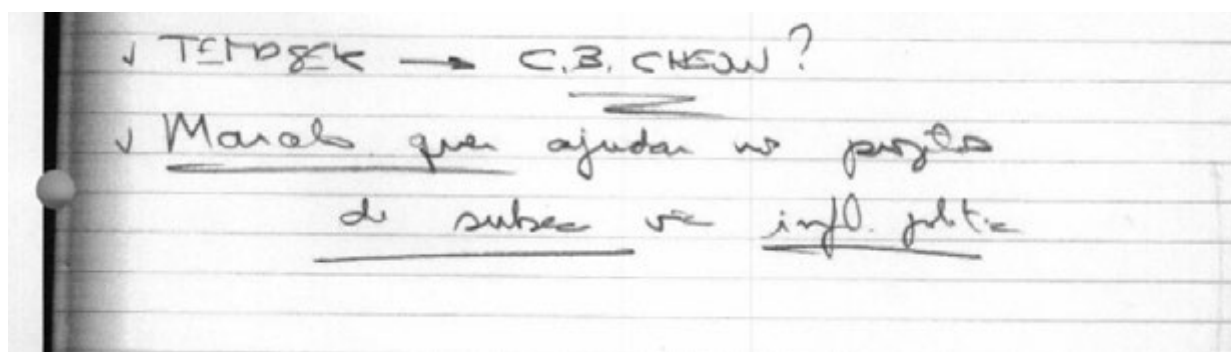 √ TEMASEK → C.B. CHEW?
√ Marcelo quer ajudar no projeto
de subsea via infl. polític